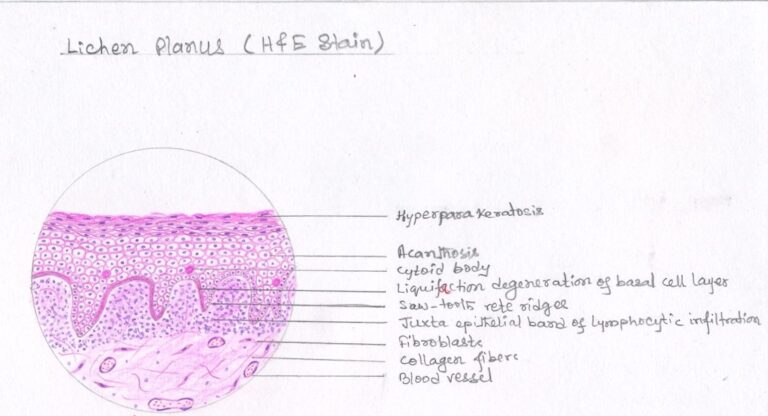 Lichen Planus (H&E Stain)
Hyperpara keratosis
Acanthosis
Cytoid body
Liquifaction degeneration of basal cell layer
Saw-tooth rete ridges
Juxta epithelial band of lymphocytic infiltration
Fibroblasts
Collagen fibers
Blood vessel